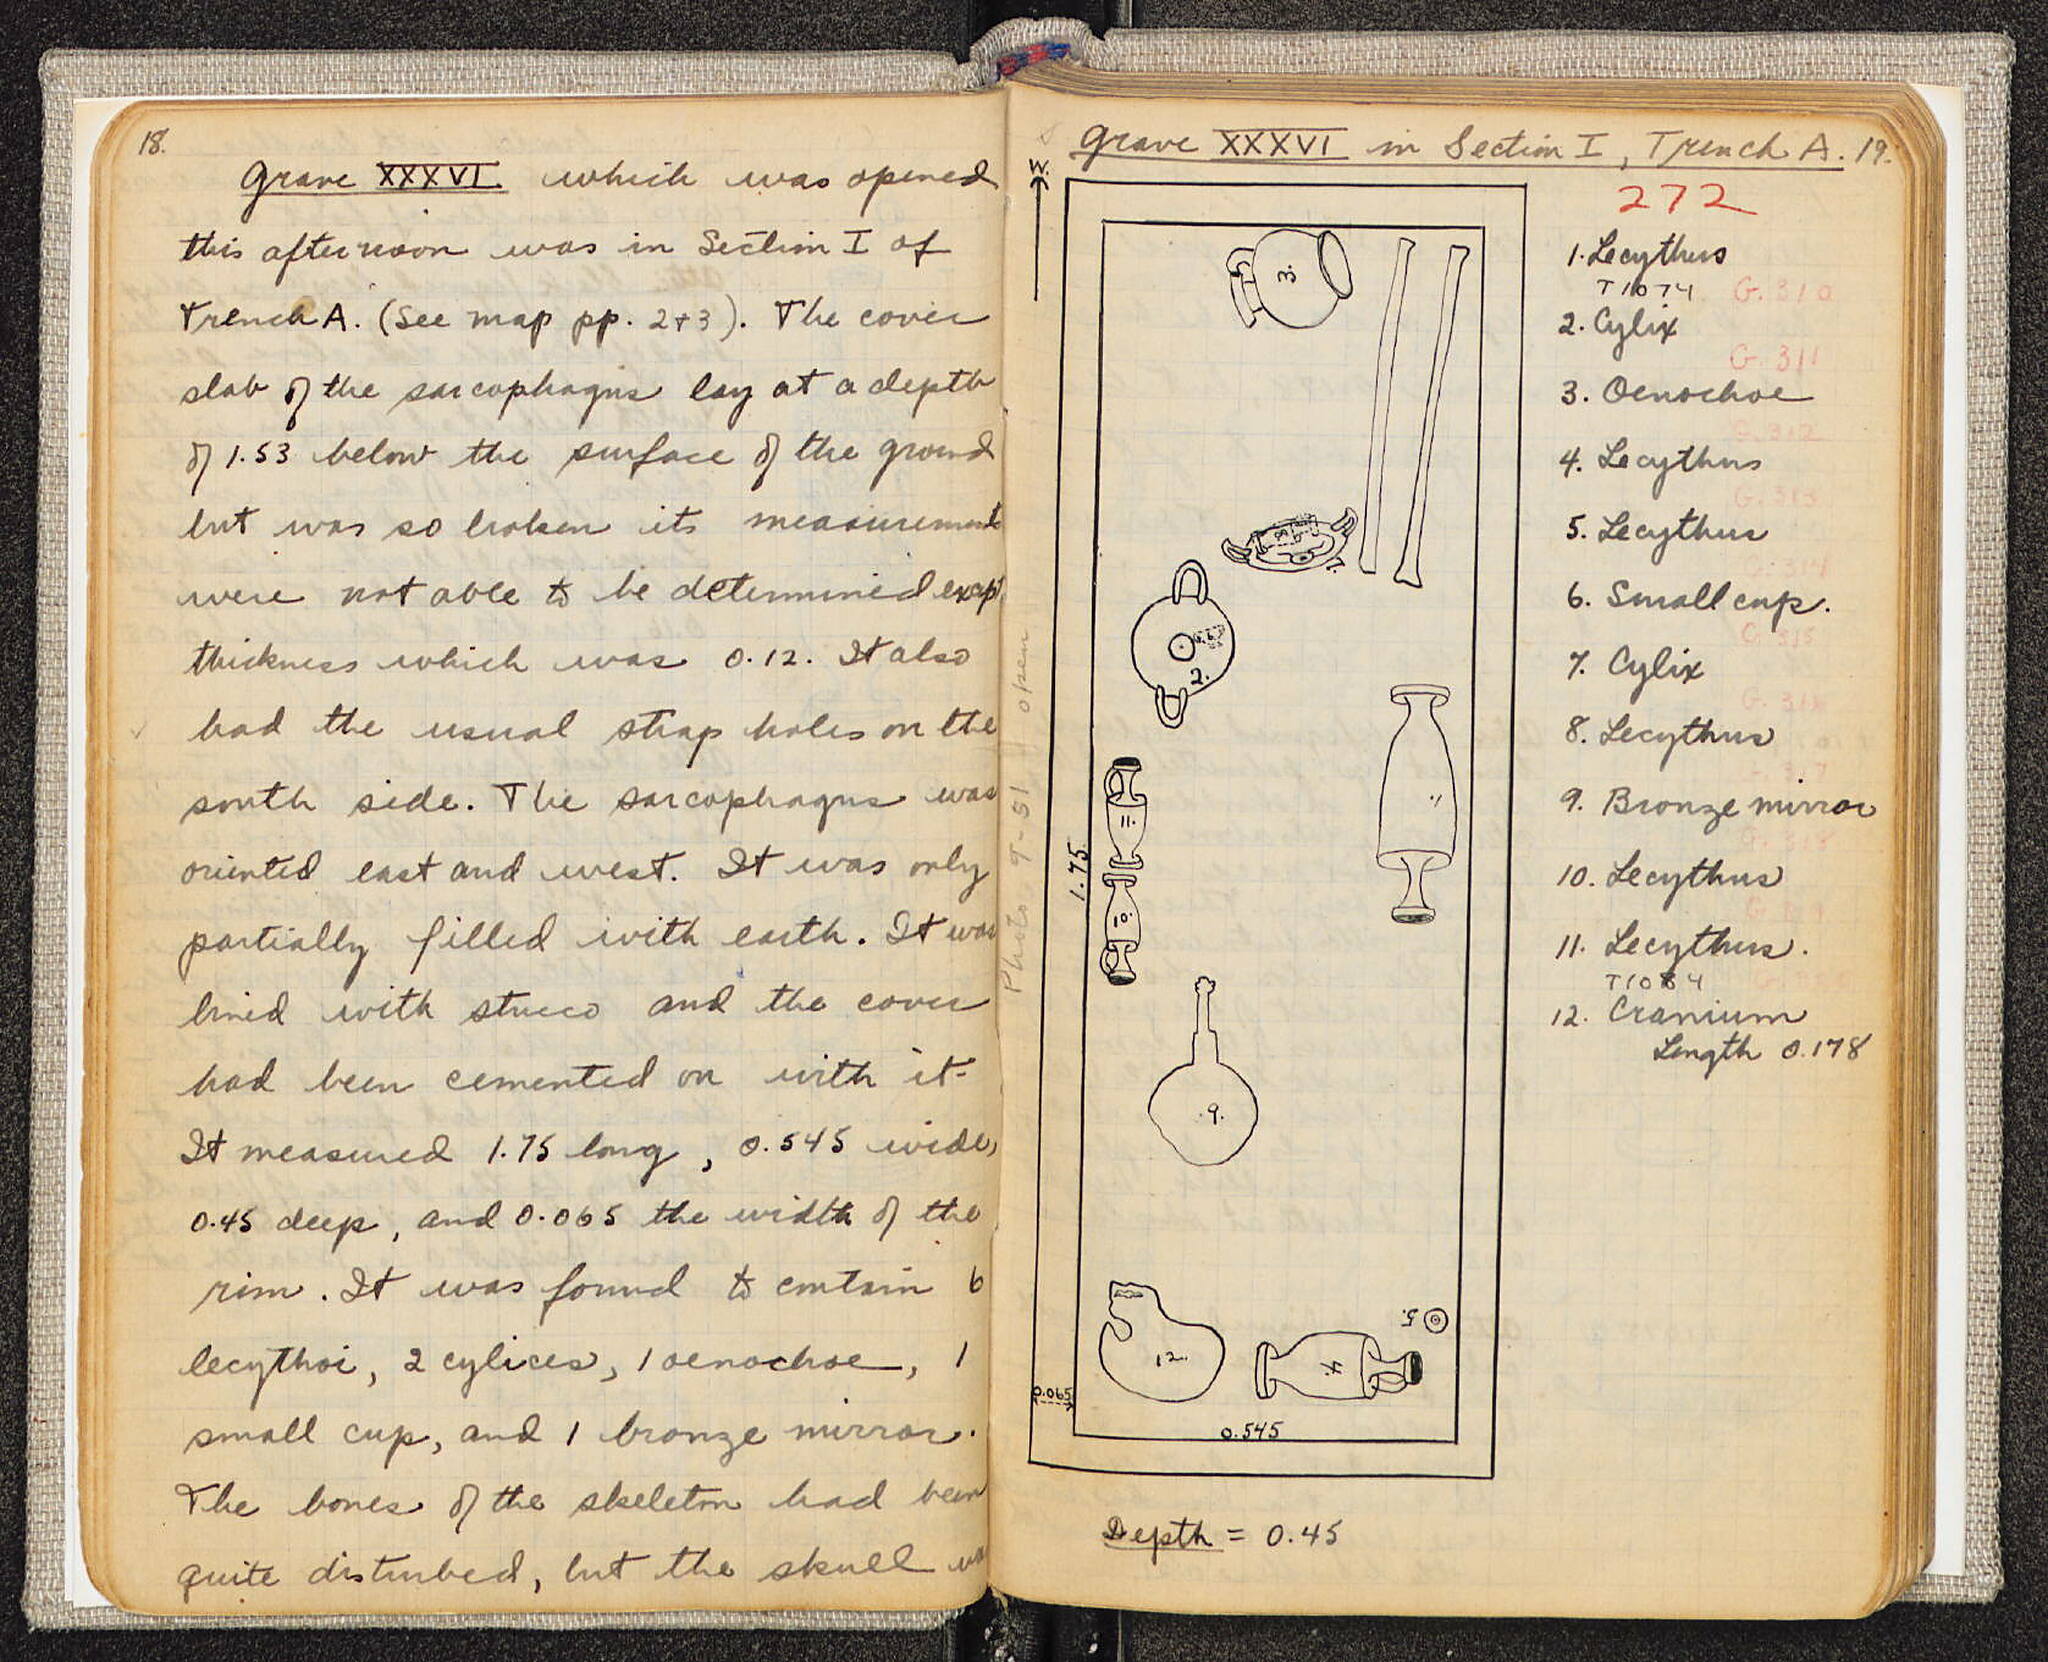 18.
Grave XXXVI which was opened
this afternoon was in Section I of
Trench A. (See map pp. 2+3). The cover
slab of the sarcophagus lay at a depth
of 1.53 below the surface of the ground
but was so broken its measurements
were not able to be determined except
thickness which was 0.12. It also
had the usual strap holes on the
south side. The sarcophagus was
oriented east and west. It was only
partially filled with earth. It was
lined with stucco and the cover
had been cemented on with it.
It measured 1.75 long, 0.545 wide,
0.45 deep, and 0.065 the width of the
rim. It was found to contain 6
lecythoi, 2 cylices, 1 oenochoe, 1
small cup, and 1 bronze mirror.
The bones of the skeleton had been
quite disturbed, but the skull was
Photo 9-51 open
Grave XXXVI in Section I, Trench A. 19.
W.
272
3.
8.
7.
6.
2.
1.
11.
10.
1.75
9.
12.
4.
5.
0.065
0.545
Depth = 0.45
1. Lecythus
T1074 G.310
2. Cylix
G.311
3. Oenochoe
G.312
4. Lecythus
G.313
5. Lecythus
G.314
6. Small cup.
G.315
7. Cylix
G.316
8. Lecythus
9. Bronze mirror
G.318
10. Lecythus
11. Lecythus.
T1084
12. Cranium
Length 0.178